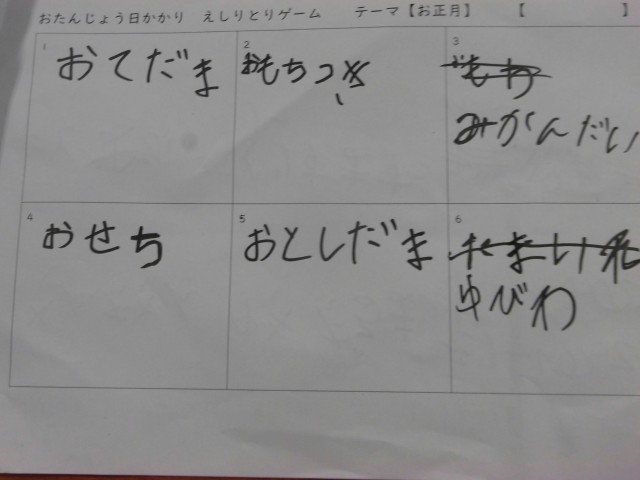 おたんじょう日かかり えしりとりゲーム テーマ【お正月】 【 】
1
おてだま
2
おもちつき
3
みかんだい
4
おせち
5
おとしだま
6
ゆびわ